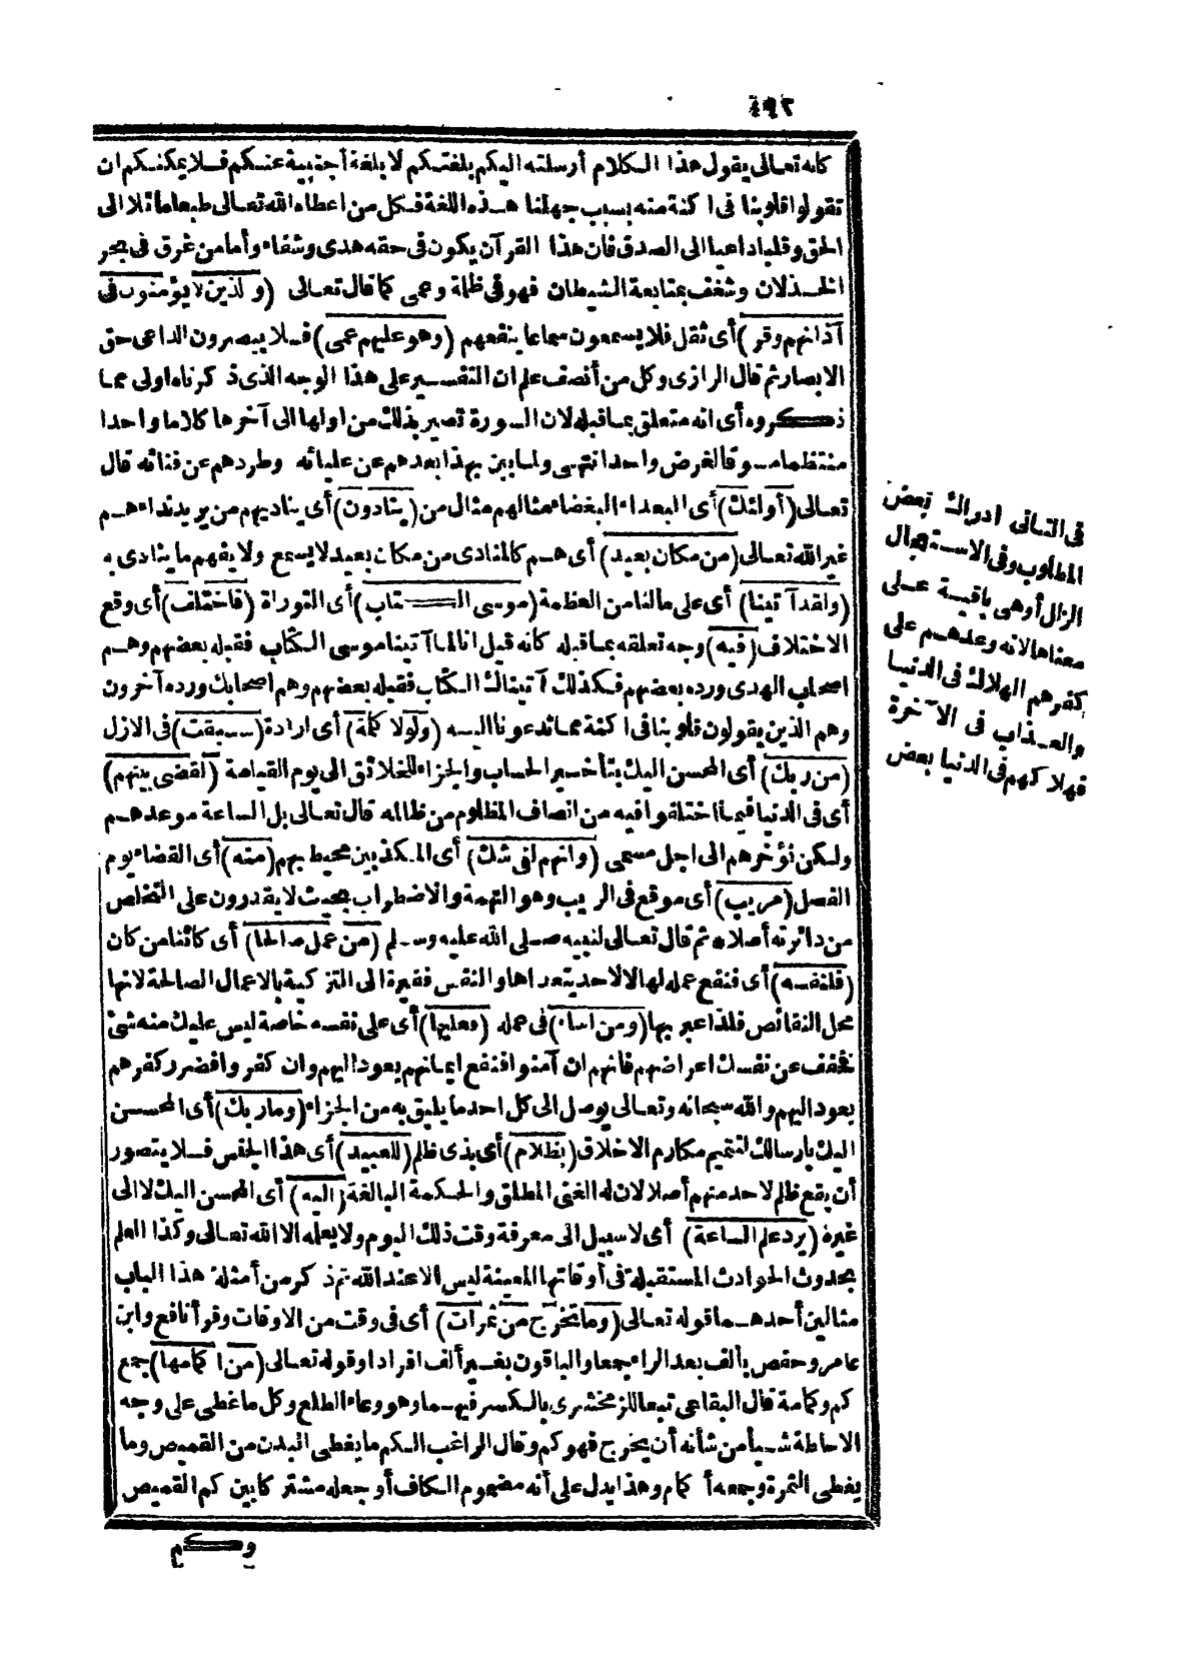 كانه تعالى يقول هذا الكلام أرسلته اليكم بلغتكم لا بلغة أجنبية عنكم فلا يمكنكم ان
تقولوا قلوبنا فى اكنة منه بسبب جهلنا هذه اللغة فكل من اعطاه الله تعالى طبعا مائلا الى
الحق وقلبا داعيا الى الصدق فان هذا القرآن يكون فى حقه هدى وشفاء وأما من غرق فى بحر
الخذلان وشغف بمتابعة الشيطان فهو فى ظلمة وعمى كما قال تعالى (والذين لا يؤمنون فى
آذانهم وقر) أى ثقل فلا يسمعون سماعا ينفعهم (وهو عليهم عمى) فلا يبصرون الداعى حق
الابصار ثم قال الرازى وكل من أنصف علم ان التفسير على هذا الوجه الذى ذكرناه اولى مما
ذكروه أى انه متعلق بما قبله لان السورة تصير بذلك من اولها الى آخرها كلاما واحدا
منتظما مسوقا لغرض واحد انتهى ولما بين بهذا بعدهم عن عليائه وطردهم عن فنائه قال
تعالى (أولئك) أى البعداء البغضاء مثالهم مثال من (ينادون) أى يناديهم من يريد نداءهم
غير الله تعالى (من مكان بعيد) أى هم كالمنادى من مكان بعيد لا يسمع ولا يفهم ما ينادى به
(ولقد آتينا) أى على مالنا من العظمة (موسى الكتاب) أى التوراة (فاختلف) أى وقع
الاختلاف (فيه) وجه تعلقه بما قبله كانه قيل انا لما آتينا موسى الكتاب فقبله بعضهم وهم
اصحاب الهدى ورده بعضهم فكذلك آتيناك الكتاب فقبله بعضهم وهم اصحابك ورده آخرون
وهم الذين يقولون قلوبنا فى اكنة مما تدعونا اليه (ولولا كلمة) أى ارادة (سبقت) فى الازل
(من ربك) أى المحسن اليك بتأخير الحساب والجزاء للخلائق الى يوم القيامة (لقضى بينهم)
أى فى الدنيا فيما اختلفوا فيه من انصاف المظلوم من ظالمه قال تعالى بل الساعة موعدهم
ولكن نؤخرهم الى اجل مسمى (وانهم لفى شك) أى المكذبين محيط بهم (منه) أى القضاء يوم
الفصل (مريب) أى موقع فى الريب وهو التهمة والاضطراب بحيث لا يقدرون على التخلص
من دائرته أصلا * ثم قال تعالى لنبيه صلى الله عليه وسلم (من عمل صالحا) أى كائنا من كان
(فلنفسه) أى فنفع عمله لها لا لاحد يتعداها والنفس فقيرة الى التزكية بالاعمال الصالحة لانها
محل النقائص فلذا عبر بها (ومن اساء) فى عمله (فعليها) أى على نفسه خاصة ليس عليك منه شئ
فخفف عن نفسك اعراضهم فانهم ان آمنوا فنفع ايمانهم يعود اليهم وان كفروا فضرر كفرهم
يعود اليهم والله سبحانه وتعالى يوصل الى كل احد ما يليق به من الجزاء (وما ربك) أى المحسن
اليك بارسالك لتتميم مكارم الاخلاق (بظلام) أى بذى ظلم (للعبيد) أى هذا الجنس فلا يتصور
أن يقع ظلم لاحد منهم أصلا لان له الغنى المطلق والحكمة البالغة (اليه) أى المحسن اليك لا الى
غيره (يرد علم الساعة) أى لا سبيل الى معرفة وقت ذلك اليوم ولا يعلمه الا الله تعالى وكذا العلم
بحدوث الحوادث المستقبلة فى أوقاتها المعينة ليس الا عند الله ثم ذكر من أمثلة هذا الباب
مثالين أحدهما قوله تعالى (وما تخرج من ثمرات) أى فى وقت من الاوقات وقرأ نافع وابن
عامر وحفص بألف بعد الراء جمعا والباقون بغير ألف افرادا وقوله تعالى (من اكمامها) جمع
كم وكمامة قال البقاعى تبعا للزمخشرى بالكسر فيهما وهو وعاء الطلع وكل ما غطى على وجه
الاحاطة شيأ من شأنه أن يخرج فهو كم وقال الراغب الكم ما يغطى البدن من القميص وما
يغطى الثمرة وجمعه أكمام وهذا يدل على أنه مضموم الكاف أو جعله مشتركا بين كم القميص
وكم
فى التانى ادراك بعض
المطلوب وفى الاستعجال
الزلل أو هى باقية على
معناها لانه وعدهم على
كفرهم الهلاك فى الدنيا
والعذاب فى الآخرة
فهلاكهم فى الدنيا بعض